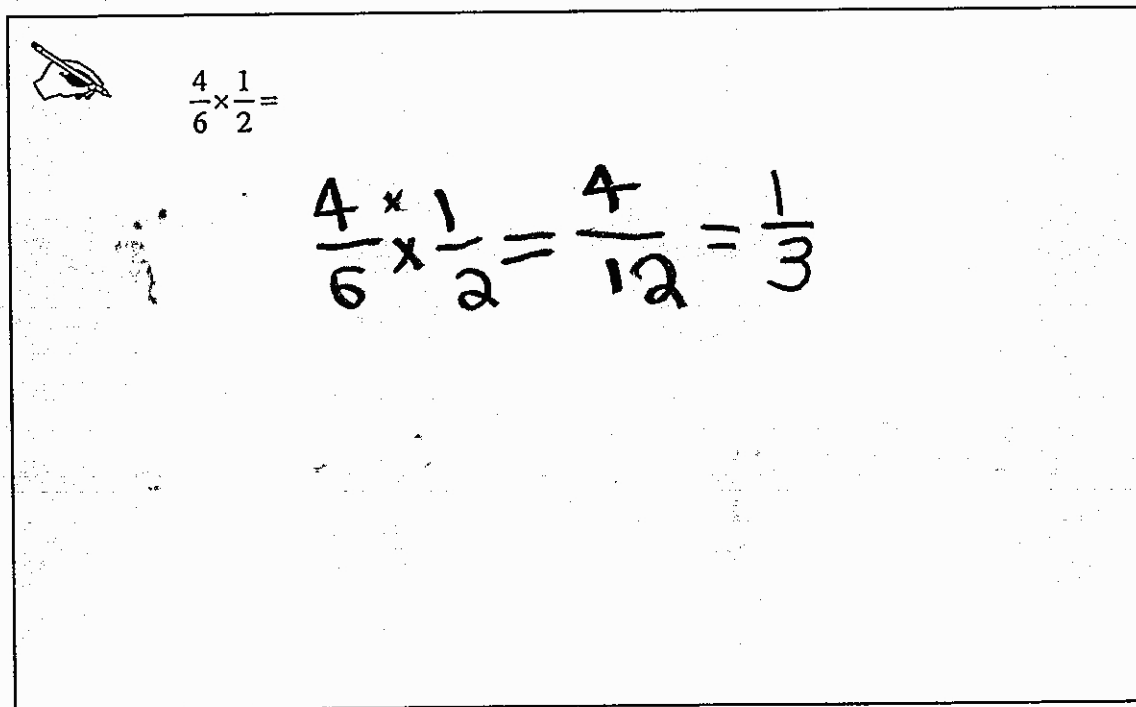 4/6 × 1/2 =
4/6 × × 1/2 = 4/12 = 1/3